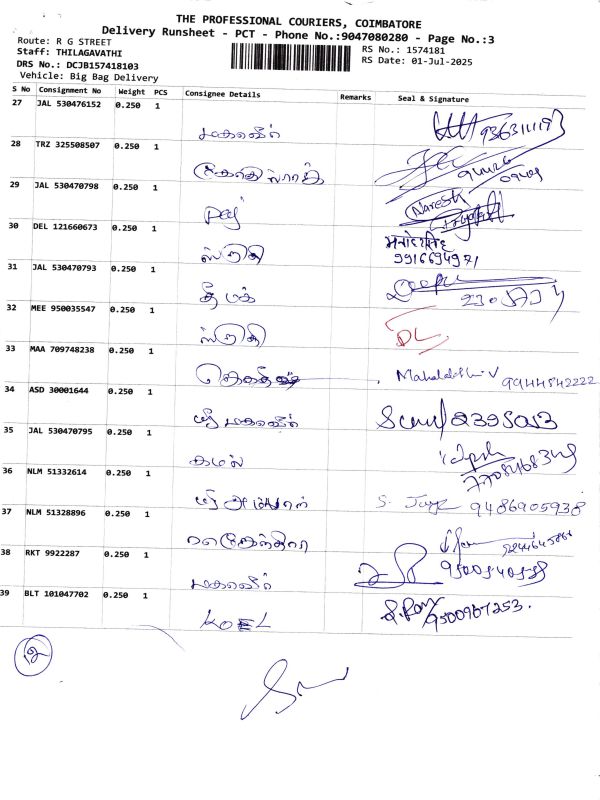 THE PROFESSIONAL COURIERS, COIMBATORE
Delivery Runsheet - PCT - Phone No.:9047080280 - Page No.:3
Route: R G STREET
RS No.: 1574181
Staff: THILAGAVATHI
RS Date: 01-Jul-2025
DRS No.: DCJB157418103
Vehicle: Big Bag Delivery
S No Consignment No Weight PCS Consignee Details Remarks Seal & Signature
27 JAL 530476152 0.250 1
மகாவீர்
28 TRZ 325508507 0.250 1
29 JAL 530470798 0.250 1
Naresh
30 DEL 121660673 0.250 1
9916694971
ஸ்ரீதி
31 JAL 530470793 0.250 1
தீபக்
32 MEE 950035547 0.250 1
ஸ்ரீதி
33 MAA 709748238 0.250 1
Mahalakshmi V 9944542222
34 ASD 30001644 0.250 1
ஸ்ரீ மகாவீர்
35 JAL 530470795 0.250 1
கமல்
36 NLM 51332614 0.250 1
9486905938
37 NLM 51328896 0.250 1
38 RKT 9922287 0.250 1
மகாவீர்
39 BLT 101047702 0.250 1
9500967253.
KOEL
12